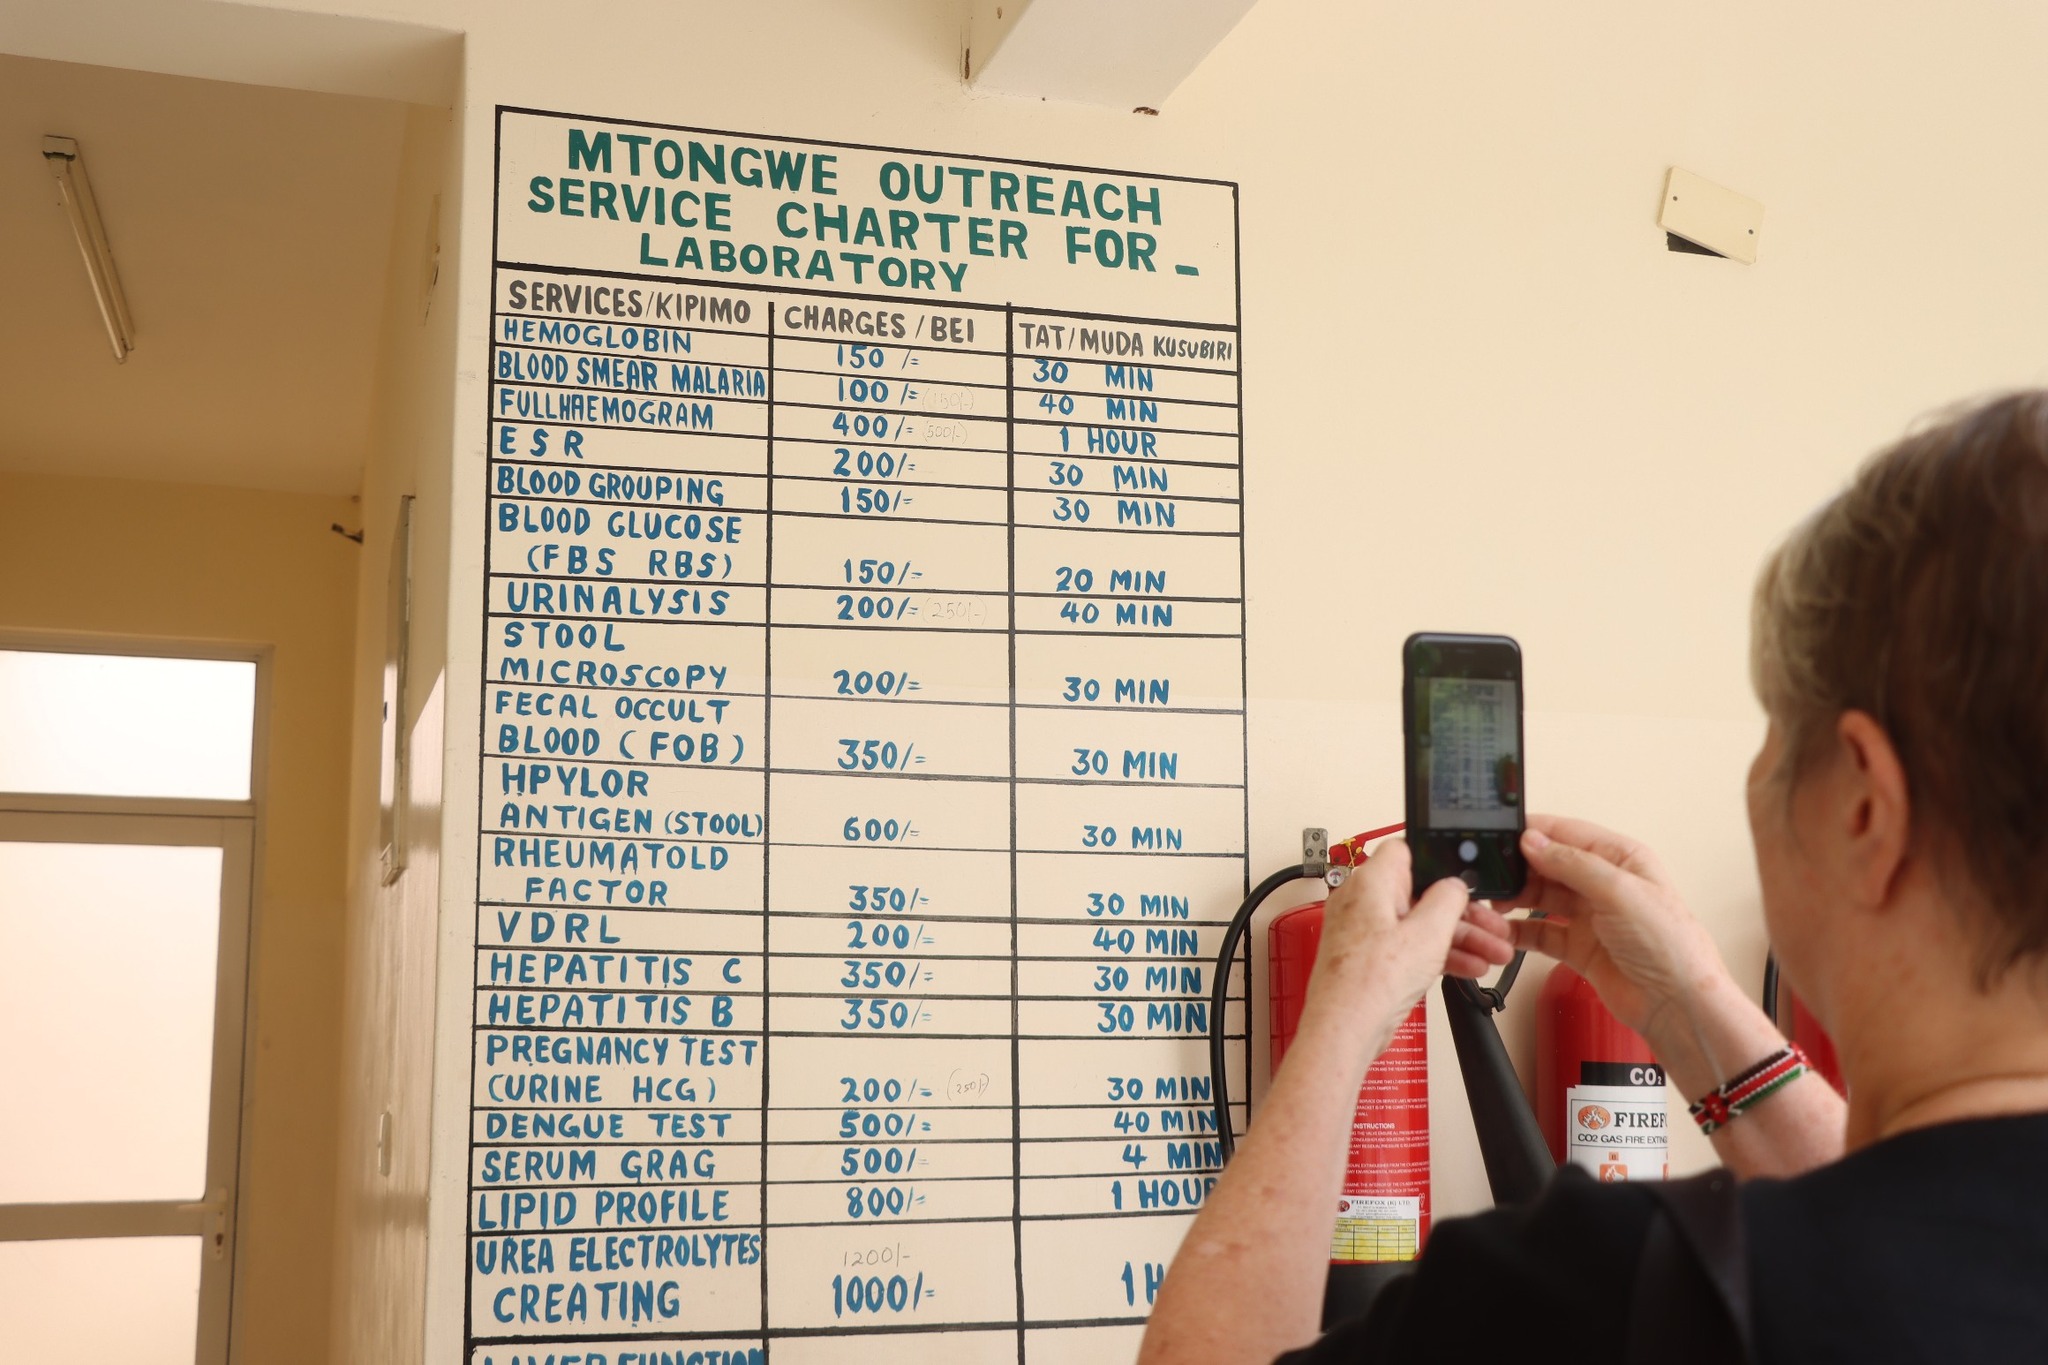 MTONGWE OUTREACH
SERVICE CHARTER FOR -
LABORATORY
SERVICES/KIPIMO CHARGES/BEI TAT/MUDA KUSUBIRI
HEMOGLOBIN 150/= 30 MIN
BLOOD SMEAR MALARIA 100/= (150/-) 40 MIN
FULLHAEMOGRAM 400/= (500/-) 1 HOUR
ESR 200/= 30 MIN
BLOOD GROUPING 150/= 30 MIN
BLOOD GLUCOSE
(FBS RBS) 150/- 20 MIN
URINALYSIS 200/= (250/-) 40 MIN
STOOL
MICROSCOPY 200/= 30 MIN
FECAL OCCULT
BLOOD (FOB) 350/= 30 MIN
HPYLOR
ANTIGEN (STOOL) 600/= 30 MIN
RHEUMATOLD
FACTOR 350/= 30 MIN
VDRL 200/= 40 MIN
HEPATITIS C 350/= 30 MIN
HEPATITIS B 350/= 30 MIN
PREGNANCY TEST
(URINE HCG) 200/= (250/-) 30 MIN
DENGUE TEST 500/= 40 MIN
SERUM GRAG 500/= 4 MIN
LIPID PROFILE 800/= 1 HOUR
UREA ELECTROLYTES 1200/-
CREATING 1000/= 1 H
LIVER FUNCTION
CO2
FIREF
CO2 GAS FIRE EXTING
INSTRUCTIONS
FIREFOX (K) LTD